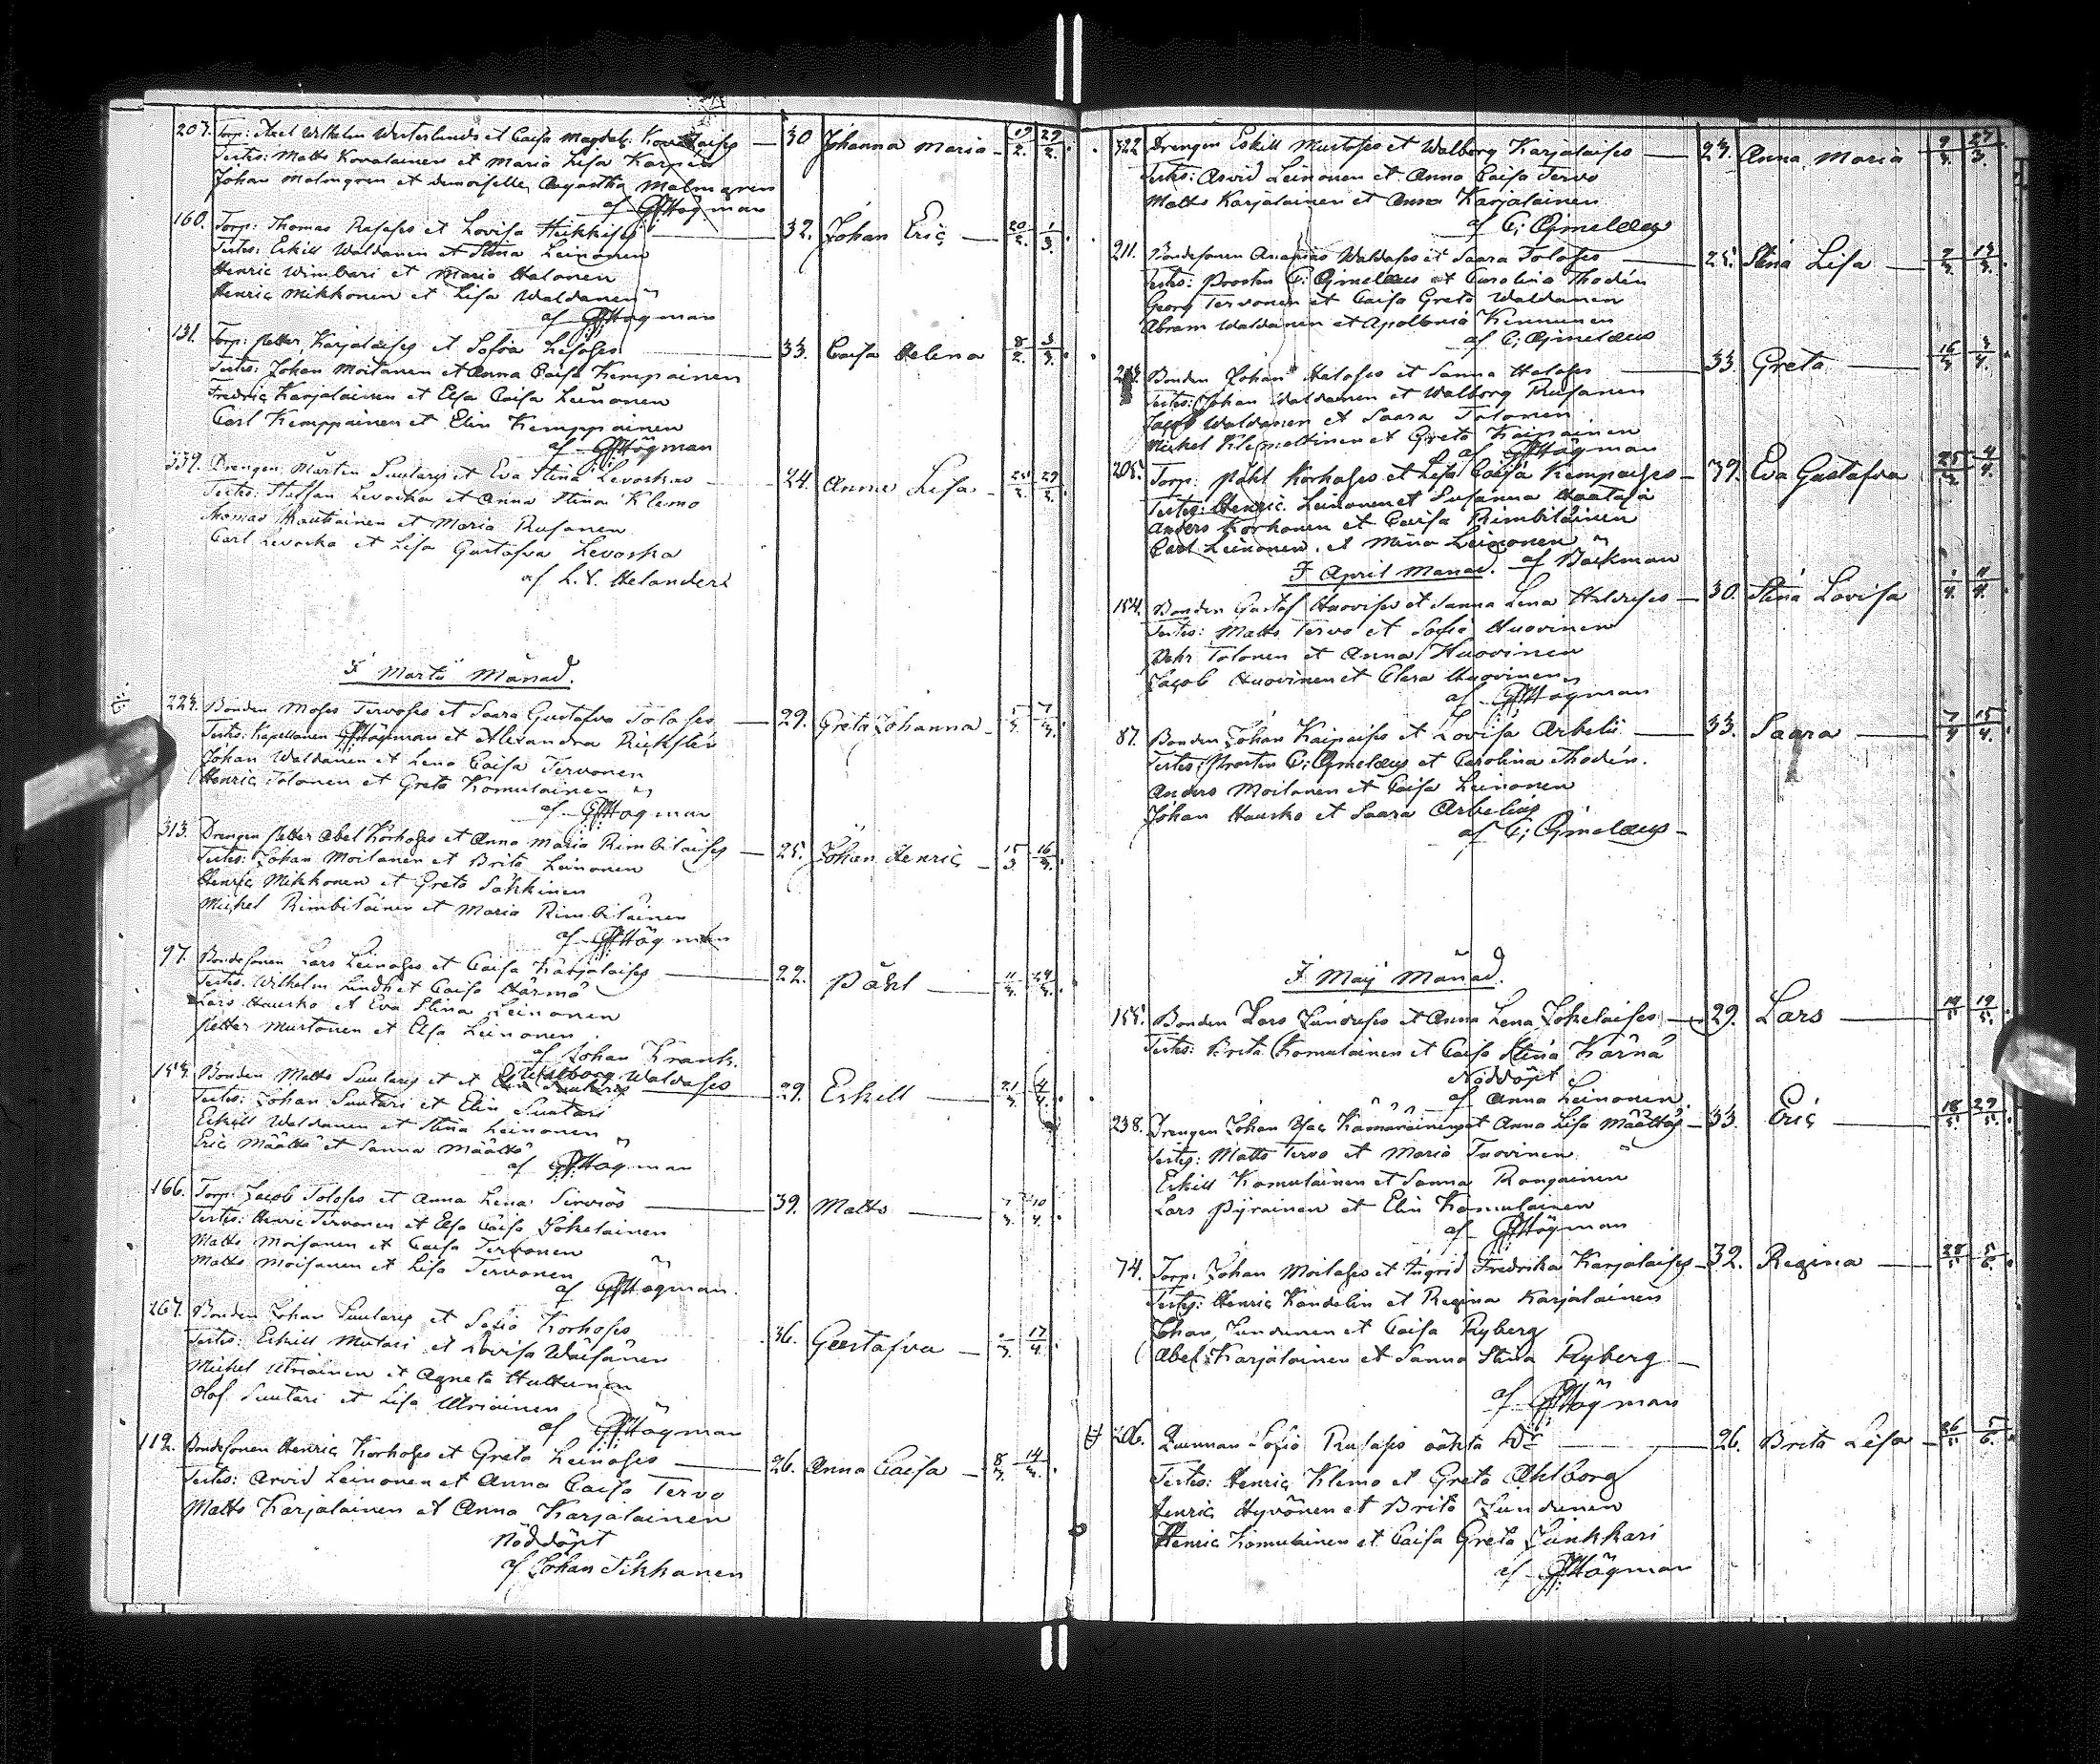 207. Torp: Axel Wilhelm Westerlunds et Caisa Magdal: — 30 Johanna Maria 19/2. 29/2.
Testes: Matts Kovalainen et Maria Lisa Karpin
Johan Malmgren et demoiselle Agatha Malmgren
af Högman
160. Torp: Thomas Rusases et Lovisa Heikkises — 32. Johan Eric — 20/2. 1/3.
Testes: Eskill Waldanen et Stina Leinonen
Henric Wimbari et Maria Halonen
Henric Mikkonen et Lisa Waldanen
af Högman
131. Torp: Petter Karjalaises et Sofia — 33. Caisa Helena 8/2. 3/3.
Testes: Johan Moilanen et Anna Caisa Kempainen
Fredric Karjalainen et Elsa Caisa Leinonen
Carl Kemppainen et Elin Kemppainen
af Högman
339. Drengen Mårten Suutarys et Eva Stina Levoskas — 24. Anna Lisa — 25/2. 29/2.
Testes: Staffan Levoska et Anna Stina Klemo
Thomas Rautiainen et Maria Rusanen
Carl Levoska et Lisa Gustafva Levoska
af L. Helander
I Martii Månad.
224. Bonden Moses Tervoses et Saara Gustafva Toloses — 29. Greta Johanna — 7/3.
Testes: Kapellanen Högman et Alexandra
Johan Waldanen et Lena Caisa Tervonen
Henric Tolonen et Greta Komulainen
af Högman
313. Drengen Petter Abel Korhoses et Anna Maria Rimbiläises — 25. Johan Henric — 15/3 16/3.
Testes: Johan Moilanen et Brita Leinonen
Henric Mikkonen et Greta Säkkinen
Michel Rimbiläinen et Maria Rimbiläinen
af Högman
97. Bondesonen Lars Leinoses et Caisa Karjalaises — 22. Påhl — 11/3. 24/3.
Testes: Wilhelm Lindh et Caisa Härmä
Lars Hausko et Eva Stina Leinonen
Petter Murtonen et Elsa Leinonen
af Johan Krank.
153. Bonden Matts Suutarys et Walborg Waldases — 29. Eskill — 21/3. 4/4.
Testes: Johan Suutari et Elin Suutari
Eskill Waldanen et Stina Leinonen
Eric Määttä et Sanna Määttä
af Högman
166. Torp: Jacob Toloses et Anna Lena Sirviös — 39. Matts — 7/3. 10/4.
Testes: Henric Tervonen et Elsa Caisa Jokelainen
Matts Moisanen et Caisa Tervonen
Matts Moisanen et Lisa Tervonen
af Högman.
267. Bonden Johan Suutarys et Sofia Korhoses — 36. Gustafva — 17/4.
Testes: Eskill Mutasi et Lovisa Wäisänen
Michel Utriainen et Agneta Huttunen
Olof Suutari et Lisa Utriainen
af Högman
112. Bondesonen Henric Korhoses et Greta Leinoses — 26. Anna Caisa — 8/3. 14/3.
Testes: Arvid Leinonen et Anna Caisa Tervo
Matts Karjalainen et Anna Karjalainen
Nöddöpt
af Johan Tikkanen
322 Drengen Eskill Mustoses et Walborg Karjalaises — 24. Anna Maria 9/3. 27/3.
Testes: Arvid Leinonen et Anna Caisa Tervo
Matts Karjalainen et Anna Karjalainen
af C: Ajmelæus
211. Bondesonen Ananias Waldases et Saara Toloses — 25. Stina Lisa — 9/3. 13/3.
Testes: Prosten C: Ajmelæus et Carolina Thodén
Georg Tervonen et Caisa Greta Waldanen
Abram Waldanen et Apollonia Kinnunen
af C: Ajmelæus
Bonden Johan Haloses et Sanna Haloses — 33. Greta — 16/3 3/4.
Testes: Johan Waldanen et Walborg Rusanen
Jacob Waldanen et Saara Tolonen
Michel Klemettinen et Greta Kaipainen
af Högman
205. Torp: Påhl Korhoses et Lisa Caisa Kempaises — 39. Eva Gustafva 25/3. 4/4.
Testes: Henric Leinonen et Susanna Haataja
Anders Korhonen et Caisa Rimbiläinen
Carl Leinonen et Mina Leinonen
af Bäckman
I April Månad.
154. Bonden Gustaf Huovises et Sanna Lena — 30. Stina Lovisa 1/4. 11/4.
Testes: Matts Tervo et Sofia Huovinen
Pehr Tolonen et Anna Huovinen
Jacob Huovinen et Clara Huovinen
af Högman
87. Bonden Johan Kaipaises et Lovisa Arbelii — 33. Saara — 7/4 15/4.
Testes: Prosten C: Ajmelæus et Carolina Thodén.
Anders Moilanen et Caisa Leinonen
Johan Hausko et Saara Arbelius
af C: Ajmelæus —
I Maij Månad.
155. Bonden Lars Junduses et Anna Lena Jokelaises — 29. Lars — 14/5. 19/5.
Testes: Brita Komulainen et Caisa Stina Kärnä
Nöddöpt
af Anna Leinonen.
238. Drengen Johan Isac Kämäräinens et Anna Lisa Määttäs — 33. Eric — 18/5. 29/5.
Testes: Matts Tervo et Maria Tuovinen
Eskill Komulainen et Sanna Rongainen
Lars Pyrainen et Elin Komulainen
af Högman
74. Torp: Johan Moilases et Ingrid Fredrika Karjalaises — 32. Regina — 28/5. 5/6.
Testes: Henric Kandelin et Regina Karjalainen
Johan Jundunen et Caisa Ryberg
Abel Karjalainen et Sanna Stina Ryberg —
af Högman
206. Qvinnan Sofia Rusases oäkta — 26. Brita Lisa — 26/5. 5/6.
Testes: Henric Klemo et Greta Ahlborg
Henric Hyvönen et Brita Jundunen
Henric Komulainen et Caisa Greta Junkkari
af Högman